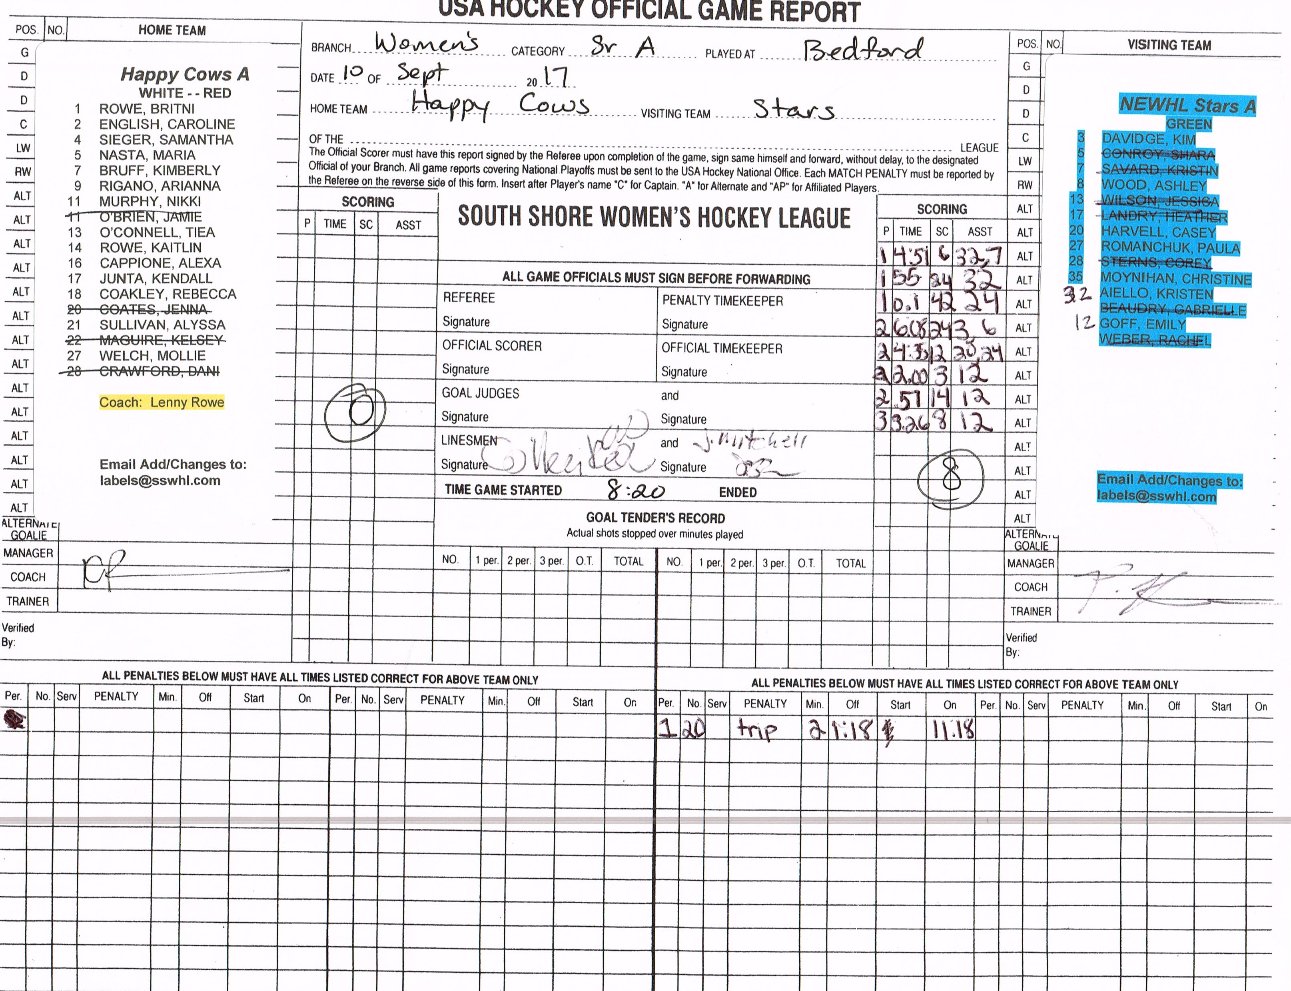 USA HOCKEY OFFICIAL GAME REPORT
POS. NO. HOME TEAM
BRANCH Women's CATEGORY Sr A PLAYED AT Bedford
DATE 10 OF Sept 2017
HOME TEAM Happy Cows VISITING TEAM Stars
OF THE LEAGUE
The Official Scorer must have this report signed by the Referee upon completion of the game, sign same himself and forward, without delay, to the designated
Official of your Branch. All game reports covering National Playoffs must be sent to the USA Hockey National Office. Each MATCH PENALTY must be reported by
the Referee on the reverse side of this form. Insert after Player's name "C" for Captain. "A" for Alternate and "AP" for Affiliated Players.
G
D
D
C
LW
RW
ALT
ALT
ALT
ALT
ALT
ALT
ALT
ALT
ALT
ALT
ALT
ALT
ALT
ALT
ALTERNATE
GOALIE
MANAGER
COACH
TRAINER
Verified
By:
Happy Cows A
WHITE -- RED
1 ROWE, BRITNI
2 ENGLISH, CAROLINE
4 SIEGER, SAMANTHA
5 NASTA, MARIA
7 BRUFF, KIMBERLY
9 RIGANO, ARIANNA
11 MURPHY, NIKKI
11 O'BRIEN, JAMIE
13 O'CONNELL, TIEA
14 ROWE, KAITLIN
16 CAPPIONE, ALEXA
17 JUNTA, KENDALL
18 COAKLEY, REBECCA
20 COATES, JENNA
21 SULLIVAN, ALYSSA
22 MAGUIRE, KELSEY
27 WELCH, MOLLIE
28 CRAWFORD, DANI
Coach: Lenny Rowe
Email Add/Changes to:
labels@sswhl.com
SCORING
P TIME SC ASST
0
SOUTH SHORE WOMEN'S HOCKEY LEAGUE
ALL GAME OFFICIALS MUST SIGN BEFORE FORWARDING
REFEREE PENALTY TIMEKEEPER
Signature Signature
OFFICIAL SCORER OFFICIAL TIMEKEEPER
Signature Signature
GOAL JUDGES and
Signature Signature
LINESMEN and J. Mitchell
Signature Signature
TIME GAME STARTED 8:20 ENDED
GOAL TENDER'S RECORD
Actual shots stopped over minutes played
NO. 1 per. 2 per. 3 per. O.T. TOTAL NO. 1 per. 2 per. 3 per. O.T. TOTAL
SCORING
P TIME SC ASST
1 4:51 6 32,7
1 55 24 32
1 0.1 42 24
2 6:08 24 3, 6
2 4:35 12 20,24
2 2.00 3 12
2 .57 14 12
3 3:26 8 12
8
POS. NO. VISITING TEAM
G
D
D
C
LW
RW
ALT
ALT
ALT
ALT
ALT
ALT
ALT
ALT
ALT
ALT
ALT
ALT
ALT
ALT
ALTERNATE
GOALIE
MANAGER
COACH
TRAINER
Verified
By:
NEWHL Stars A
GREEN
3 DAVIDGE, KIM
5 CONROY, SHARA
7 SAVARD, KRISTIN
8 WOOD, ASHLEY
13 WILSON, JESSICA
17 LANDRY, HEATHER
20 HARVELL, CASEY
27 ROMANCHUK, PAULA
28 STERNS, COREY
35 MOYNIHAN, CHRISTINE
32 AIELLO, KRISTEN
BEAUDRY, GABRIELLE
12 GOFF, EMILY
WEBER, RACHEL
Email Add/Changes to:
labels@sswhl.com
ALL PENALTIES BELOW MUST HAVE ALL TIMES LISTED CORRECT FOR ABOVE TEAM ONLY
Per. No. Serv PENALTY Min. Off Start On Per. No. Serv PENALTY Min. Off Start On
ALL PENALTIES BELOW MUST HAVE ALL TIMES LISTED CORRECT FOR ABOVE TEAM ONLY
Per. No. Serv PENALTY Min. Off Start On Per. No. Serv PENALTY Min. Off Start On
1 20 trip 2 1:18 11:18